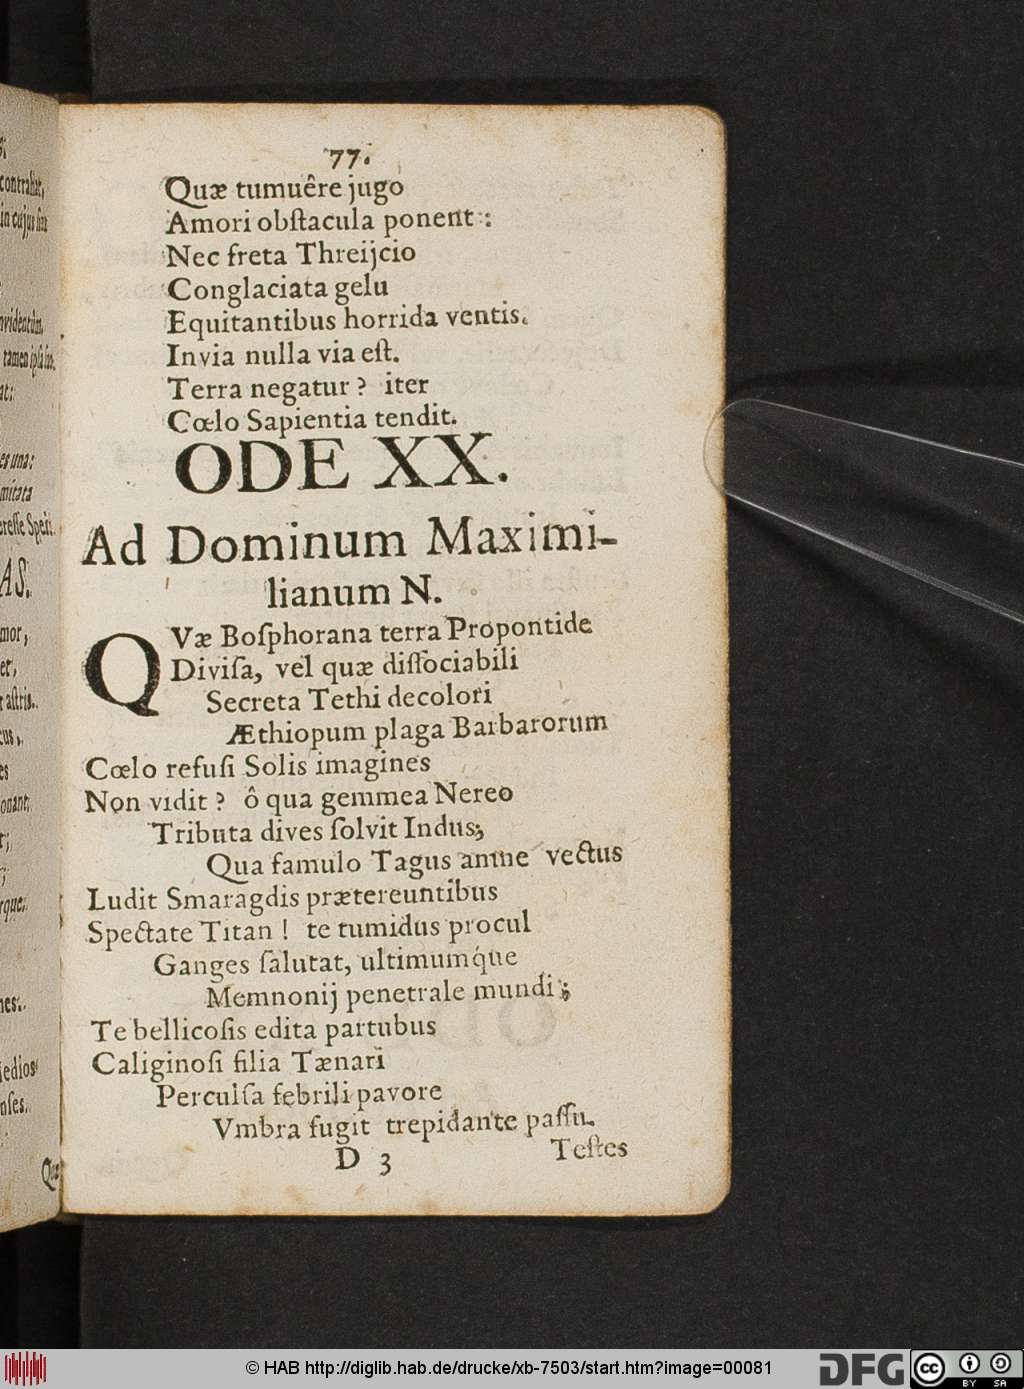 77.
Quæ tumuêre jugo
Amori obſtacula ponent :
Nec freta Threijcio
Conglaciata gelu
Equitantibus horrida ventis.
Invia nulla via eſt.
Terra negatur ? iter
Cœlo Sapientia tendit.
ODE XX.
Ad Dominum Maximi-
lianum N.
QVæ Boſphorana terra Propontide
Diviſa, vel quæ diſſociabili
Secreta Tethi decolori
Æthiopum plaga Barbarorum
Cœlo refuſi Solis imagines
Non vidit ? ô qua gemmea Nereo
Tributa dives ſolvit Indus;
Qua famulo Tagus amne vectus
Ludit Smaragdis prætereuntibus
Spectate Titan ! te tumidus procul
Ganges ſalutat, ultimumq́ue
Memnonij penetrale mundi ;
Te bellicoſis edita partubus
Caliginoſi filia Tænari
Perculſa febrili pavore
Vmbra fugit trepidante paſſu.
D 3
Teſtes
contrahat,
in cujus
tamen
es una:
AS.
mor,
er,
aſtris.
Quæ
© HAB http://diglib.hab.de/drucke/xb-7503/start.htm?image=00081
DFG
cc BY SA